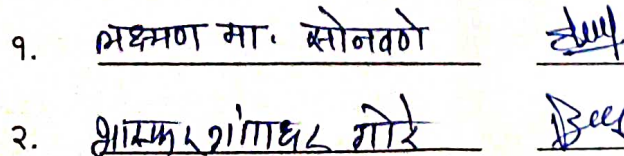 १. लक्ष्मण मा. सोनवणे
२. भास्कर गंगाधर गोरे